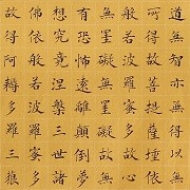 道無智亦無得以無
所得故菩提薩埵依
般若波羅蜜多故心
無罣礙無罣礙故無
有恐怖遠離顛倒夢
想究竟涅槃三世諸
佛依般若波羅蜜多
故得阿耨多羅三藐